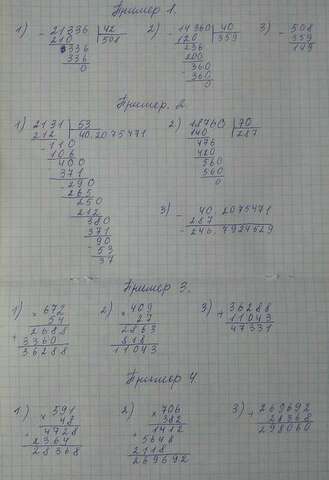 Пример 1.
1) - 21336 | 42   2) - 14360 | 40   3) - 508
210 | 508   120 | 359   359
336   236   149
336   200
0   360
- 360
0
Пример. 2
1) 2131 | 53   2) 18760 | 70
212 | 40,2075471   140 | 287
- 110   476
106   420
400   560
371   560
- 290   0
265
250
212
380   3) - 40,2075471
371   287
- 90   - 246,7924529
- 53
37
Пример 3.
1) × 672   2) × 409   3) + 36288
54   27   11043
2688   2863   47331
+ 3360   818
36288   11043
Пример 4.
1) × 591   2) × 706   3) + 269692
48   382   28368
4728   1412   298060
+ 2364   + 5648
28368   2118
269692